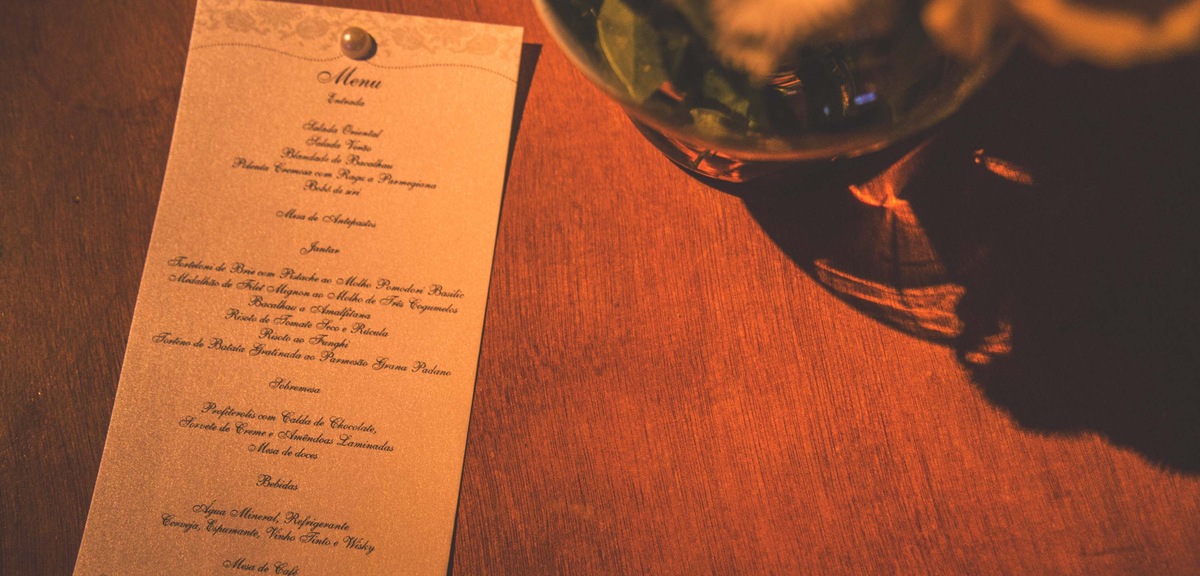 Menu
Entrada
Salada Oriental
Salada Verão
Blandade de Bacalhau
Polenta Cremosa com Ragu a Parmegiana
Bobó de siri
Mesa de Antepastos
Jantar
Torteloni de Brie com Pistache ao Molho Pomodori Basilic
Medalhão de Filet Mignon ao Molho de Três Cogumelos
Bacalhau a Amalfitana
Risoto de Tomate Seco e Rúcula
Risoto ao Funghi
Torteno de Batata Gratinada ao Parmesão Grana Padano
Sobremesa
Profiterolis com Calda de Chocolate,
Sorvete de Creme e Amêndoas Laminadas
Mesa de doces
Bebidas
Água Mineral, Refrigerante
Cerveja, Espumante, Vinho Tinto e Wisky
Mesa de Café